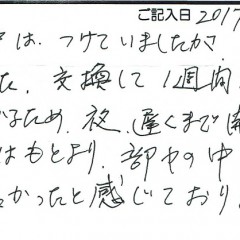 ご記入日 2017
は、つけていましたが
た。交換して1週間
るため、夜、遅くまで
はもとより、部屋の中
かったと感じており